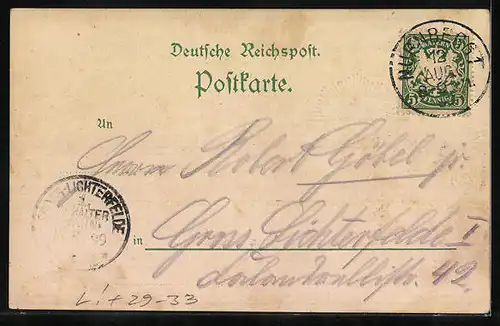 Deutsche Reichspost.
Postkarte.
BAYERN
5 5
PFENNIG
NÜRNBERG 1
12
AUG
An
Herrn Robert Göbel jr.
in Gross Lichterfelde I
42.
LICHTERFELDE
99
Lit 29-33